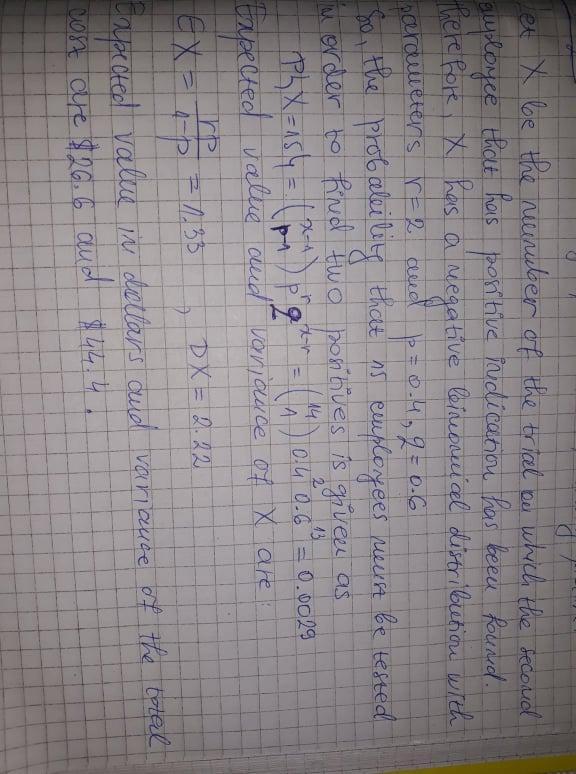 Let X be the number of the trial on which the second
employee that has positive indication has been found.
Therefore, X has a negative binomial distribution with
parameters r=2 and p=0.4, q=0.6
So, the probability that 15 employees must be tested
in order to find two positives is given as
P{X=15} = (x-1 p-1) p^r q^x-r = (14 1) 0.4^2 0.6^13 = 0.0029
Expected value and variance of X are:
EX = rp/1-p = 1.33 , DX = 2.22
Expected value in dollars and variance of the total
cost are $26.6 and $44.4.